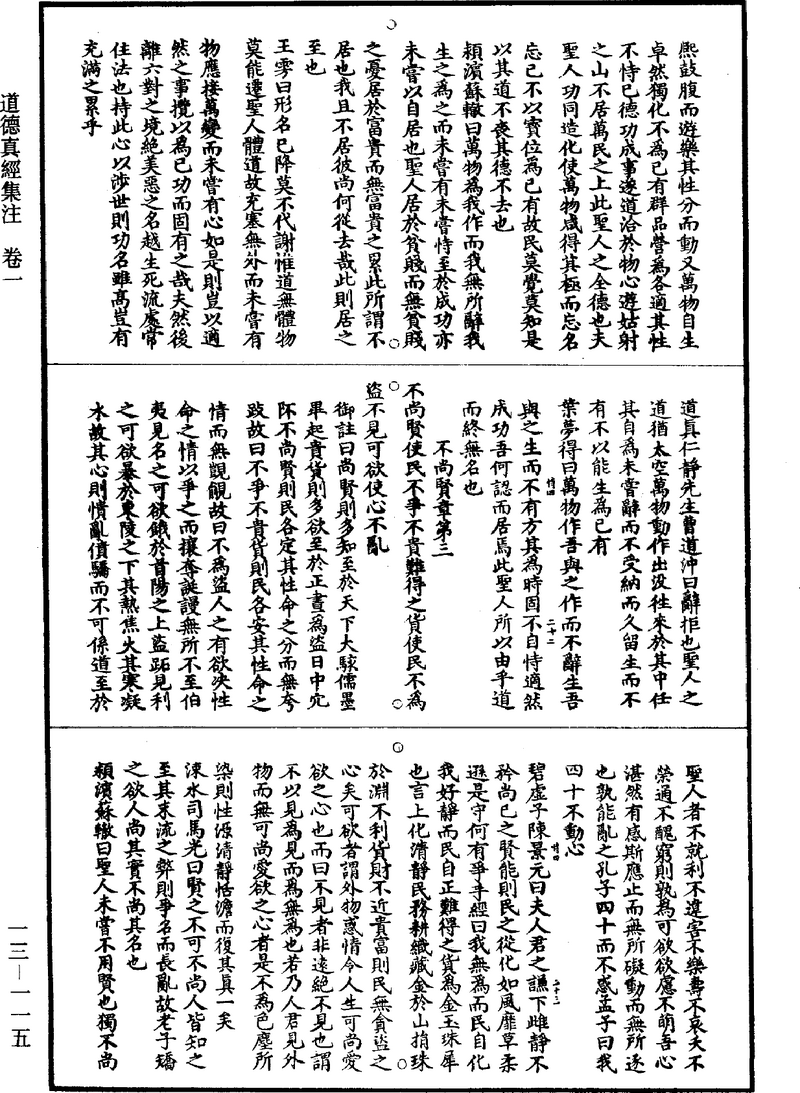 道德真經集注　卷一
熙鼓腹而遊樂其性分而動又萬物自生
卓然獨化不為己有群品營為各適其性
不恃已德功成事遂道洽於物心遊姑射
之山不居萬民之上此聖人之全德也夫
聖人功同造化使萬物咸得其極而忘名
忘己不以寶位為已有故民莫覺莫知是
以其道不喪其德不去也
潁濱蘇轍曰萬物為我作而我無所辭我
生之為之而未嘗有未嘗恃至於成功亦
未嘗以自居也聖人居於貧賤而無貧賤
之憂居於富貴而無富貴之累此所謂不
居也我且不居彼尚何從去哉此則居之
至也
王雱曰形名已降莫不代謝惟道無體物
莫能遷聖人體道故充塞無外而未嘗有
物應接萬變而未嘗有心如是則豈以適
然之事攬以為己功而固有之哉夫然後
離六對之境絕美惡之名越生死流處常
住法也持此心以涉世則功名雖高豈有
充滿之累乎
道真仁靜先生曹道沖曰辭拒也聖人之
道猶太空萬物動作出没徃來於其中任
其自為未嘗辭而不受納而久留生而不
有不以能生為已有
葉夢得曰萬物作吾與之作而不辭生吾
與之生而不有方其為時固不自恃適然
成功吾何認而居焉此聖人所以由乎道
而終無名也
不尚賢章第三
不尚賢使民不爭不貴難得之貨使民不為
盜不見可欲使心不亂
御註曰尚賢則多知至於天下大駭儒墨
畢起貴貨則多欲至於正晝為盜日中穴
阫不尚賢則民各定其性命之分而無夸
跂故曰不爭不貴貨則民各安其性命之
情而無覬覦故曰不為盜人之有欲决性
命之情以爭之而攘奪誕謾無所不至伯
夷見名之可欲餓於首陽之上盜跖見利
之可欲暴於東陵之下其熱焦火其寒凝
氷故其心則憒亂僨驕而不可係道至於
聖人者不就利不違害不樂壽不哀夭不
榮通不醜窮則孰為可欲欲慮不萌吾心
湛然有感斯應止而無所礙動而無所逐
也孰能亂之孔子四十而不惑孟子曰我
四十不動心
碧虛子陳景元曰夫人君之謙下雌靜不
矜尚己之賢能則民之從化如風靡草柔
遜是守何有爭乎經曰我無為而民自化
我好靜而民自正難得之貨為金玉珠犀
也言上化清靜民務耕織藏金於山捐珠
於淵不利貨財不近貴富則民無貪盜之
心矣可欲者謂外物惑情令人生可尚愛
欲之心也而曰不見者非遠絕不見也謂
不以見為見而為無為也若乃人君見外
物而無可尚愛欲之心者是不為色塵所
染則性源清靜恬澹而復其真一矣
涑水司馬光曰賢之不可不尚人皆知之
至其末流之弊則爭名而長亂故老子矯
之欲人尚其實不尚其名也
潁濱蘇轍曰聖人未嘗不用賢也獨不尚
一三—一一五